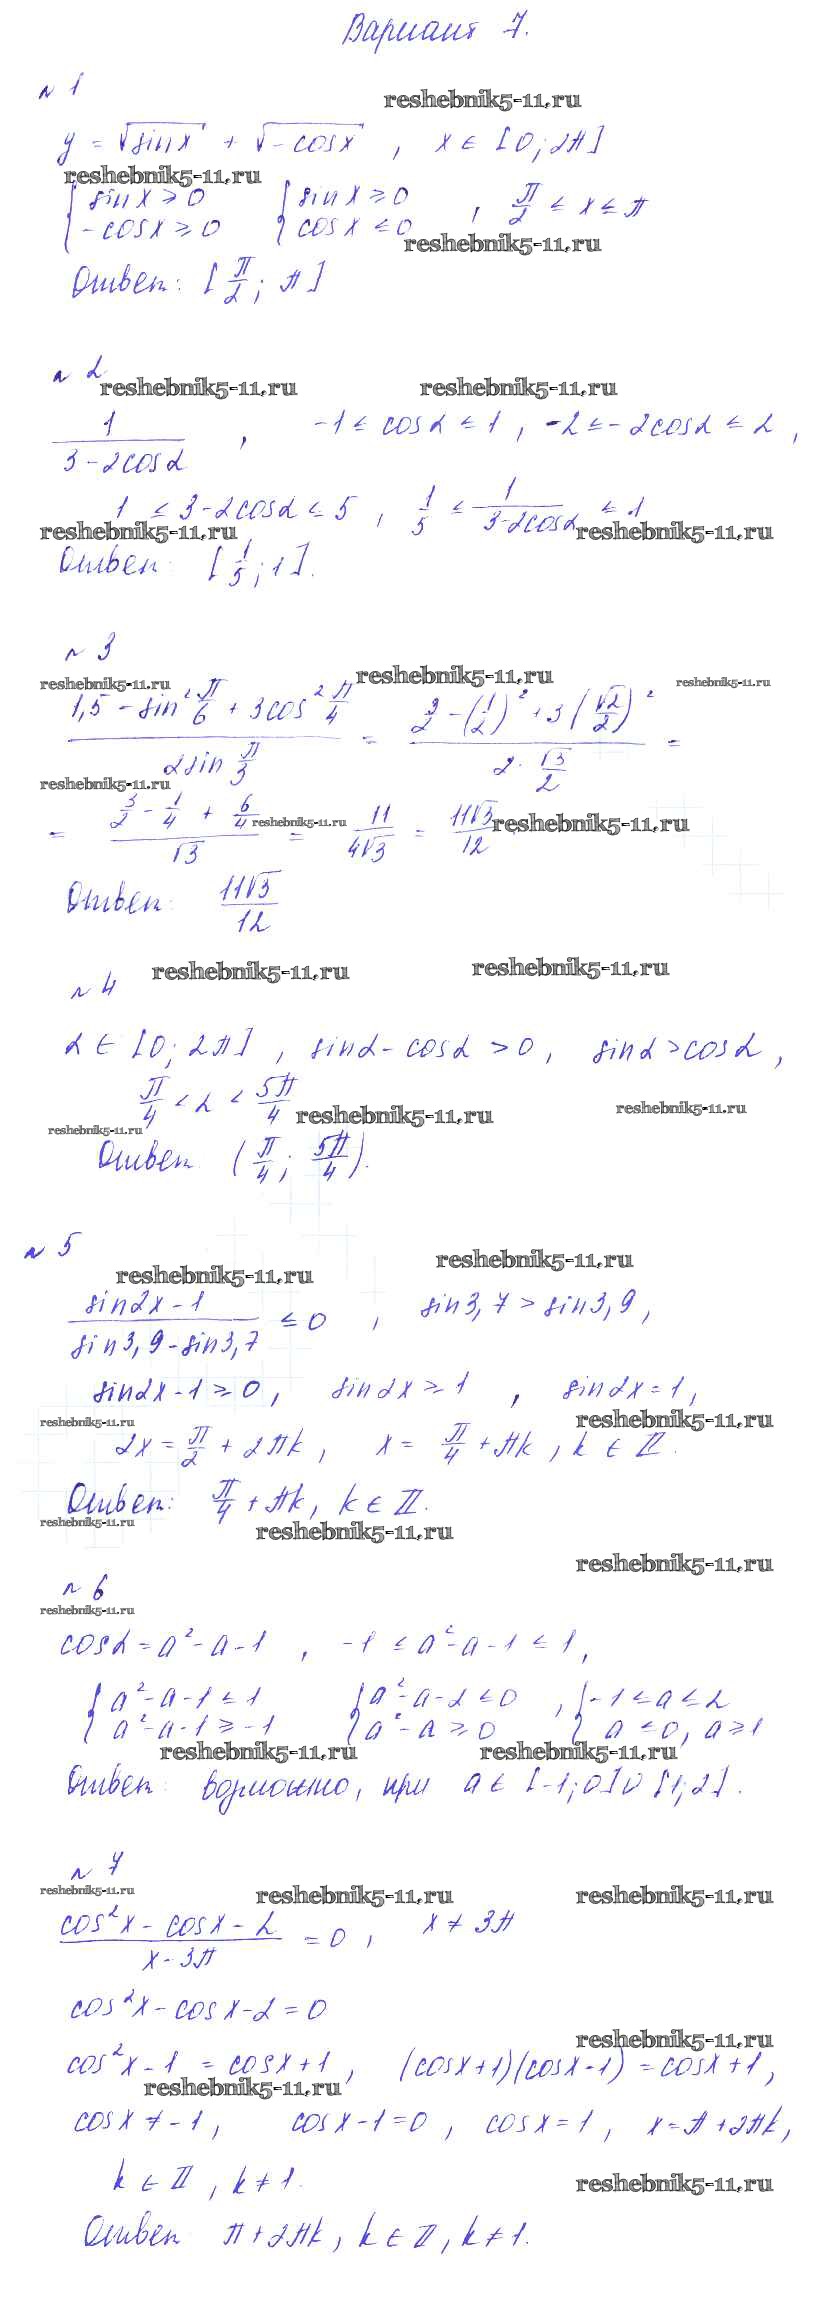 Вариант 7.
№ 1
reshebnik5-11.ru
y = √sinx + √-cosx , x ∈ [0; 2π]
reshebnik5-11.ru
{ sinx ≥ 0 { sinx ≥ 0 , π/2 ≤ x ≤ π
{ -cosx ≥ 0 { cosx ≤ 0
reshebnik5-11.ru
Ответ: [π/2; π]
№ 2
reshebnik5-11.ru reshebnik5-11.ru
1/(3-2cosα) , -1 ≤ cosα ≤ 1 , -2 ≤ -2cosα ≤ 2 ,
1 ≤ 3-2cosα ≤ 5 , 1/5 ≤ 1/(3-2cosα) ≤ 1
reshebnik5-11.ru reshebnik5-11.ru
Ответ: [1/5; 1].
№ 3
reshebnik5-11.ru reshebnik5-11.ru reshebnik5-11.ru
(1,5 - sin²π/6 + 3cos²π/4)/(2sin π/3) = (3/2 - (1/2)² + 3(√2/2)²)/(2·√3/2) =
reshebnik5-11.ru
= (3/2 - 1/4 + 6/4)/√3 = 11/(4√3) = 11√3/12
reshebnik5-11.ru reshebnik5-11.ru
Ответ: 11√3/12
reshebnik5-11.ru reshebnik5-11.ru
№ 4
α ∈ [0; 2π] , sinα - cosα > 0, sinα > cosα ,
π/4 < α < 5π/4
reshebnik5-11.ru reshebnik5-11.ru
reshebnik5-11.ru
Ответ (π/4; 5π/4).
№ 5
reshebnik5-11.ru reshebnik5-11.ru
(sin2x - 1)/(sin3,9 - sin3,7) ≤ 0 , sin3,7 > sin3,9 ,
sin2x - 1 ≥ 0 , sin2x ≥ 1 , sin2x = 1 ,
reshebnik5-11.ru reshebnik5-11.ru
2x = π/2 + 2πk , x = π/4 + πk , k ∈ Z.
Ответ: π/4 + πk, k ∈ Z.
reshebnik5-11.ru reshebnik5-11.ru
reshebnik5-11.ru
№ 6
reshebnik5-11.ru
cosα = a² - a - 1 , -1 ≤ a² - a - 1 ≤ 1 ,
{ a² - a - 1 ≤ 1 { a² - a - 2 ≤ 0 , { -1 ≤ a ≤ 2
{ a² - a - 1 ≥ -1 { a² - a ≥ 0 { a ≤ 0, a ≥ 1
reshebnik5-11.ru reshebnik5-11.ru
Ответ: возможно, при a ∈ [-1; 0] ∪ [1; 2].
№ 7
reshebnik5-11.ru reshebnik5-11.ru reshebnik5-11.ru
(cos²x - cosx - 2)/(x - 3π) = 0 , x ≠ 3π
cos²x - cosx - 2 = 0
reshebnik5-11.ru
cos²x - 1 = cosx + 1 , (cosx+1)(cosx-1) = cosx + 1 ,
reshebnik5-11.ru
cosx ≠ -1 , cosx - 1 = 0 , cosx = 1 , x = π + 2πk,
k ∈ Z , k ≠ 1.
reshebnik5-11.ru
Ответ π + 2πk, k ∈ Z, k ≠ 1.